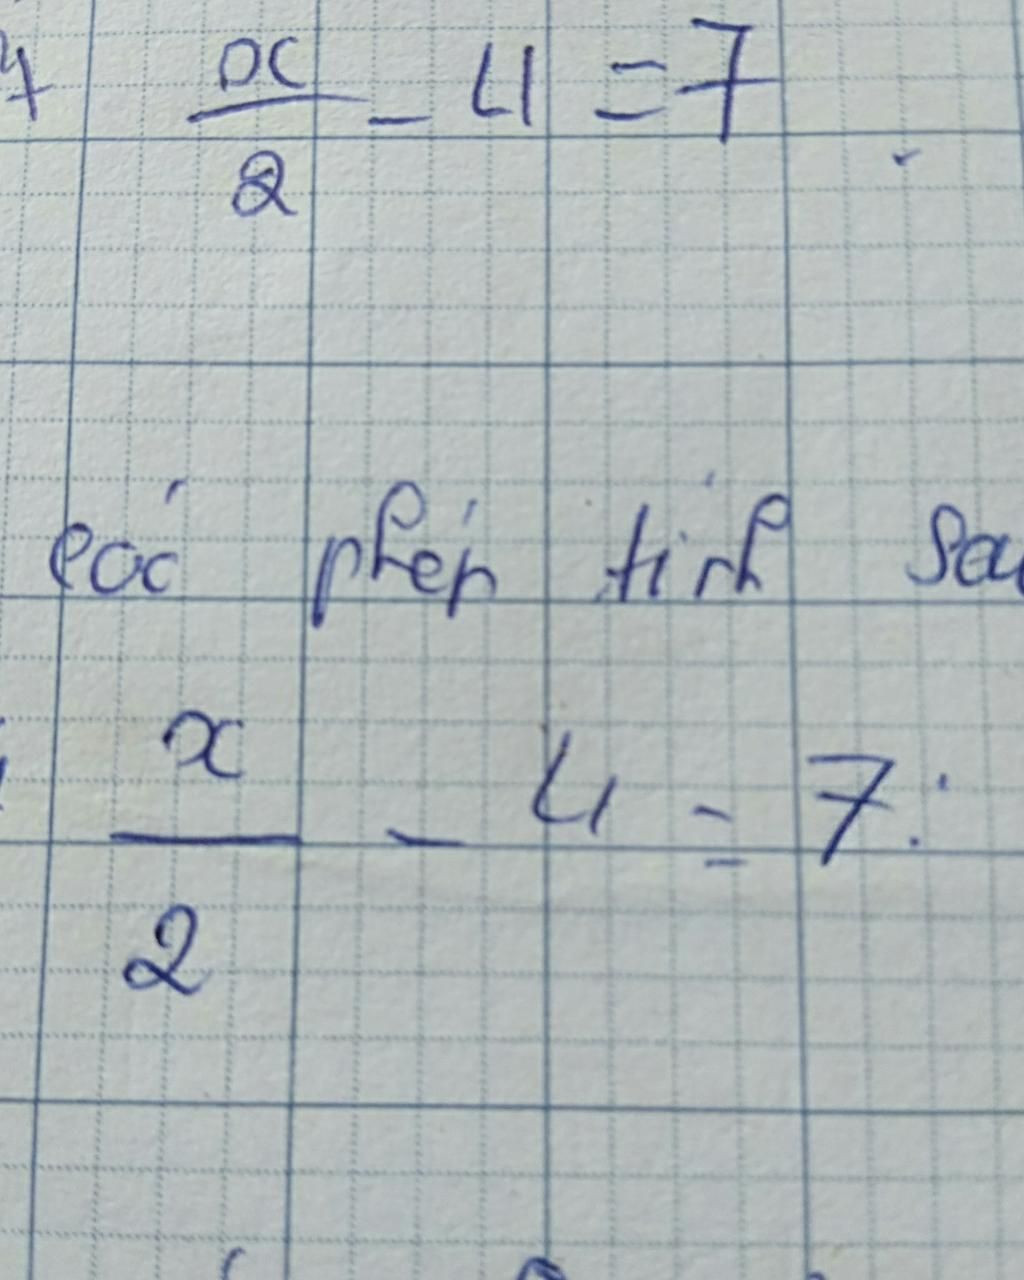 x/2 - 4 = 7
các phép tính
x/2 - 4 = 7.